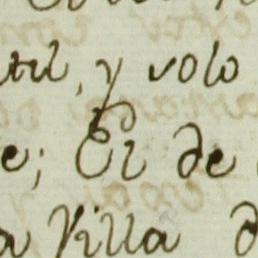 til, y volo
e; El de
a Villa d